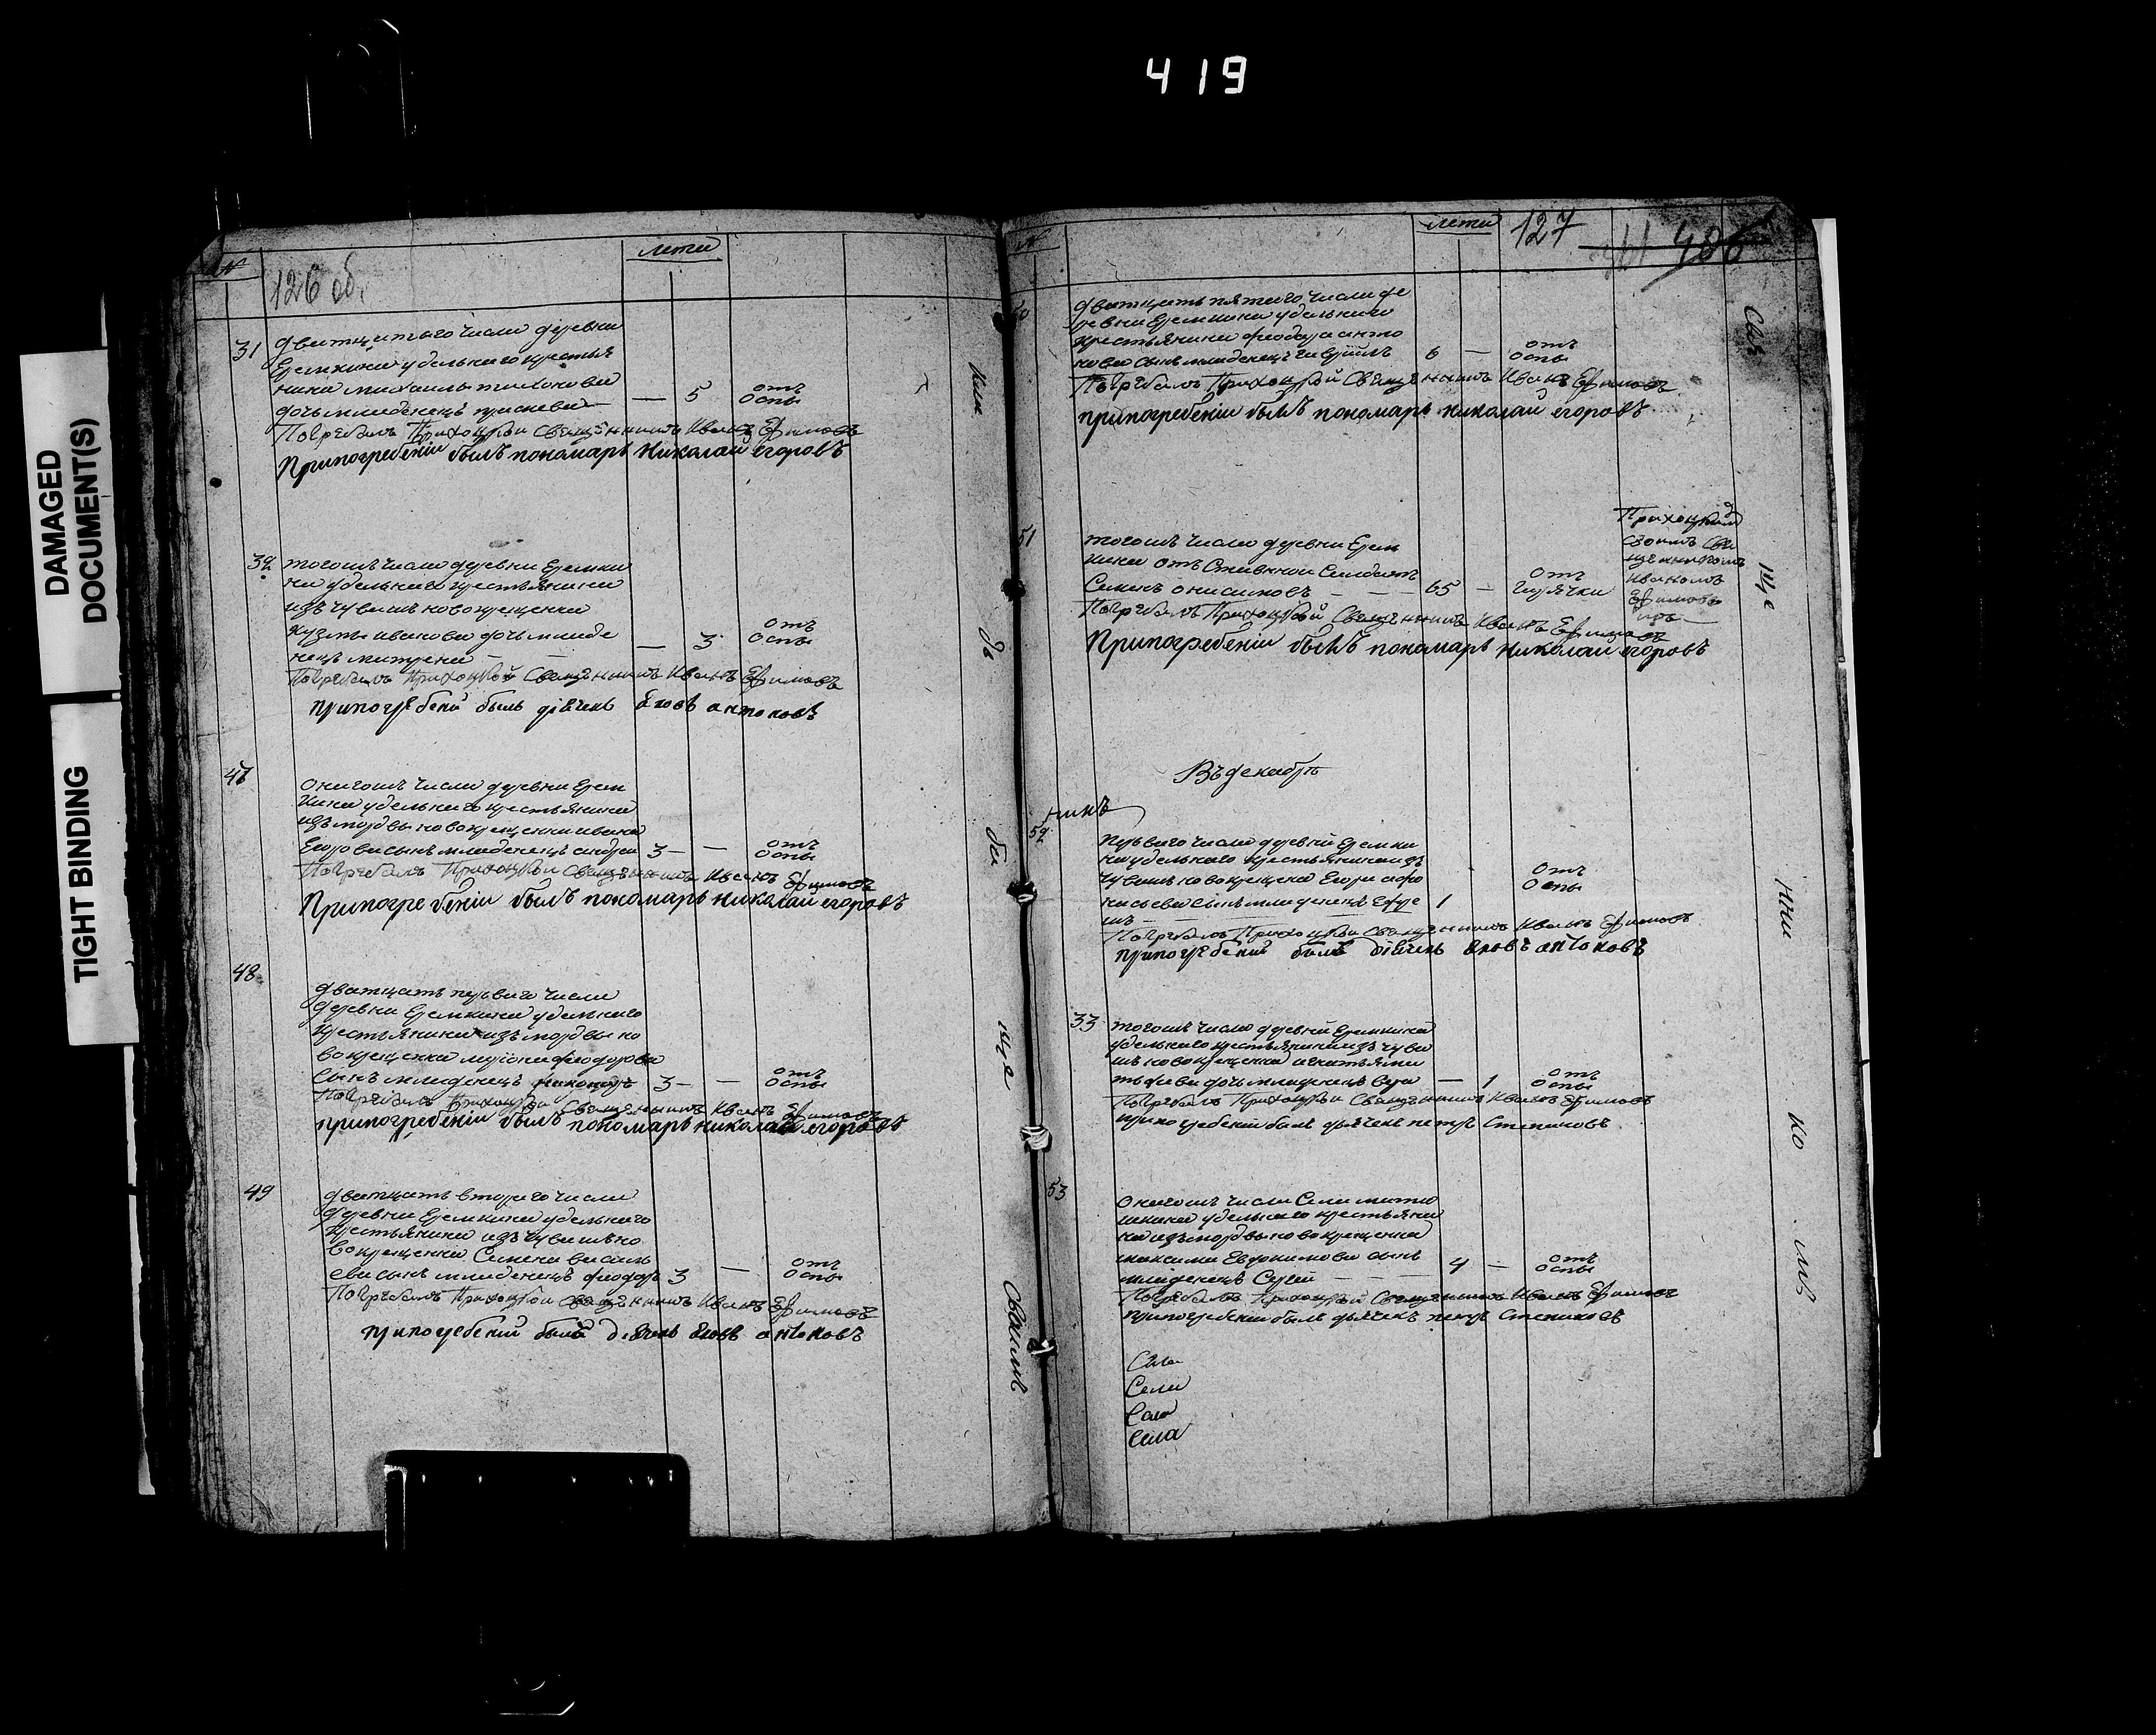 419
DAMAGED
DOCUMENT(S)
TIGHT BINDING
№
лета
126 об.
31
Дватцатаго числа деревни
Еремкина удельнаго крестья
нина михаила тихонова
дочь младенецъ прасковья
— 5
отъ
оспы
Погребалъ Приходской Священникъ Иванъ Ефимовъ
Припогребении былъ пономарь Николай егоровъ
32
тогожъ числа деревни Еремки
на удельнаго крестьянина
изъ чувашъ новокрещена
кузмы иванова дочь младе
нецъ матрена
— 3
отъ
оспы
Погребалъ Приходской Священникъ Иванъ Ефимовъ
припогребени былъ дiячекъ яковъ антоновъ
47
Оногожъ числа деревни Ерем
кина удельнаго крестьянина
изъ мордвы новокрещена ивана
Егорова сынъ младенецъ андрей
3 — —
отъ
оспы
Погребалъ Приходской Священникъ Иванъ Ефимовъ
Припогребенiи былъ пономарь николай егоровъ
48
дватцать перваго числа
деревни Еремкина удельнаго
крестьянина изъ мордвы но
вокрещена феодорова
сынъ младенецъ
3 — —
отъ
оспы
Погребалъ Приходской Священникъ Иванъ Ефимовъ
припогребенiи былъ пономарь николай егоровъ
49
двatцать втораго числа
деревни Еремкина удельнаго
крестьянина изъ чувашъ но
вокрещена Семена василь
ева сынъ младенецъ феодоръ
3 —
отъ
оспы
Погребалъ Приходской Священникъ Иванъ Ефимовъ
припогребении былъ дiячекъ яковъ антоновъ
Своимъ
№
лета
127
486
50
дватцать пятаго числа де
ревни Еремкина удельнаго
крестьянина феодора анто
нова сынъ младенецъ
6 —
отъ
оспы
Погребалъ Приходской Священникъ Иванъ Ефимовъ
припогребенiи былъ пономарь николай егоровъ
51
тогожъ числа деревни Ерем
кина отъ Ставной Салдатъ
Семенъ онисимовъ — — — 65 —
отъ
горячки
Приходским
своимъ Свя
щенникомъ
Иваномъ
Ефимовы
мъ
Погребалъ Приходской Священникъ Иванъ Ефимовъ
Припогребенiи былъ пономарь николай егоровъ
Въ декабрѣ
никъ
52
перваго числа деревни Еремки
на удельнаго крестьянина изъ
чувашъ новокрещена Егора афо
насьева сынъ младенецъ Ефре
мъ
1
отъ
оспы
Погребалъ Приходской Священникъ Иванъ Ефимовъ
припогребении былъ дiячекъ яковъ антоновъ
33
тогожъ числа деревни Еремкина
удельнаго крестьянина изъ чува
шъ новокрещена игнатья ма
тфева дочь младенецъ вера
— 1
отъ
оспы
Погребалъ Приходской Священникъ Иванъ Ефимовъ
припогребении былъ дьячекъ петръ Степановъ
53
Оногожъ числа Села матю
шкина удельнаго крестьяни
на изъ мордвы новокрещена
максима Евдокимова сынъ
младенецъ Сергей — — —
4 —
отъ
оспы
Погребалъ Приходской Священникъ Иванъ Ефимовъ
припогребении былъ дьячекъ петръ Степановъ
Села
Села
Села
Села
Свя
ще
нни
ко
мъ